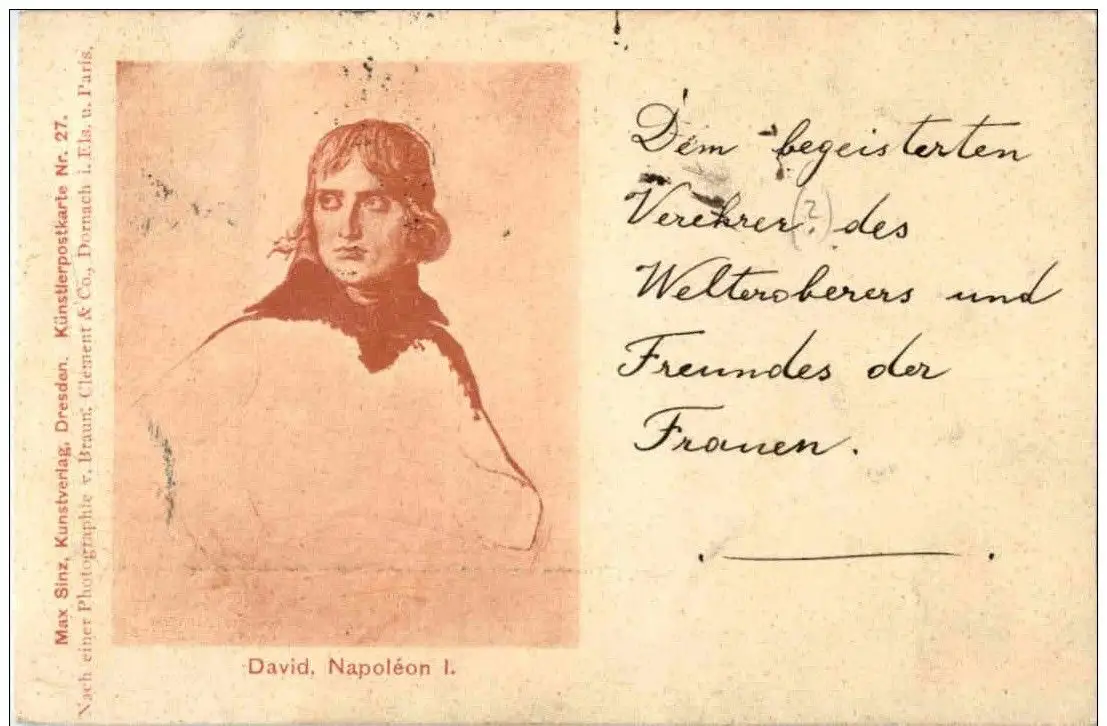 Max Sinz, Kunstverlag, Dresden. Künstlerpostkarte Nr. 27.
Nach einer Photographie v. Braun, Clement & Co., Dornach i. Els. u. Paris.
David, Napoléon I.
Dem begeisterten
Verehrer (?) des
Welteroberers und
Freundes der
Frauen.